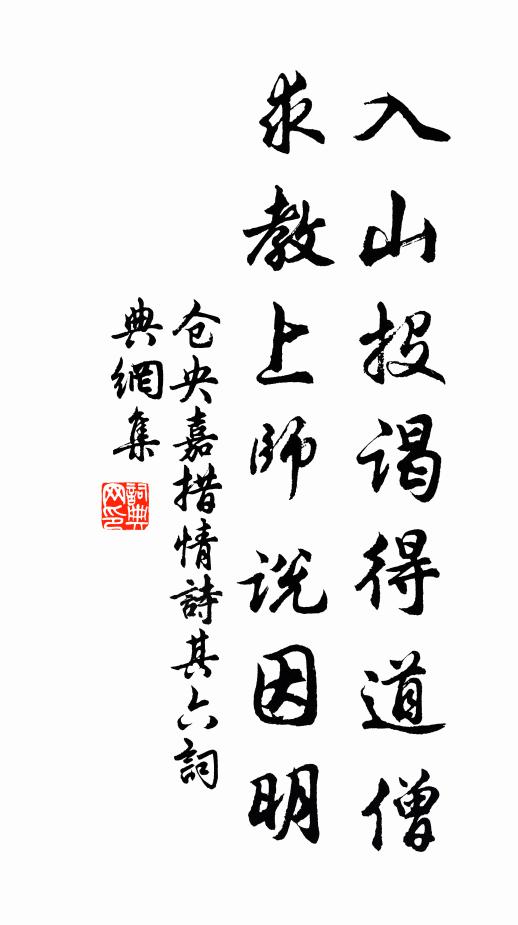 入山投谒得道僧
求教上師说因明
仓央嘉措情詩其六詞
典網集
詞典
网印